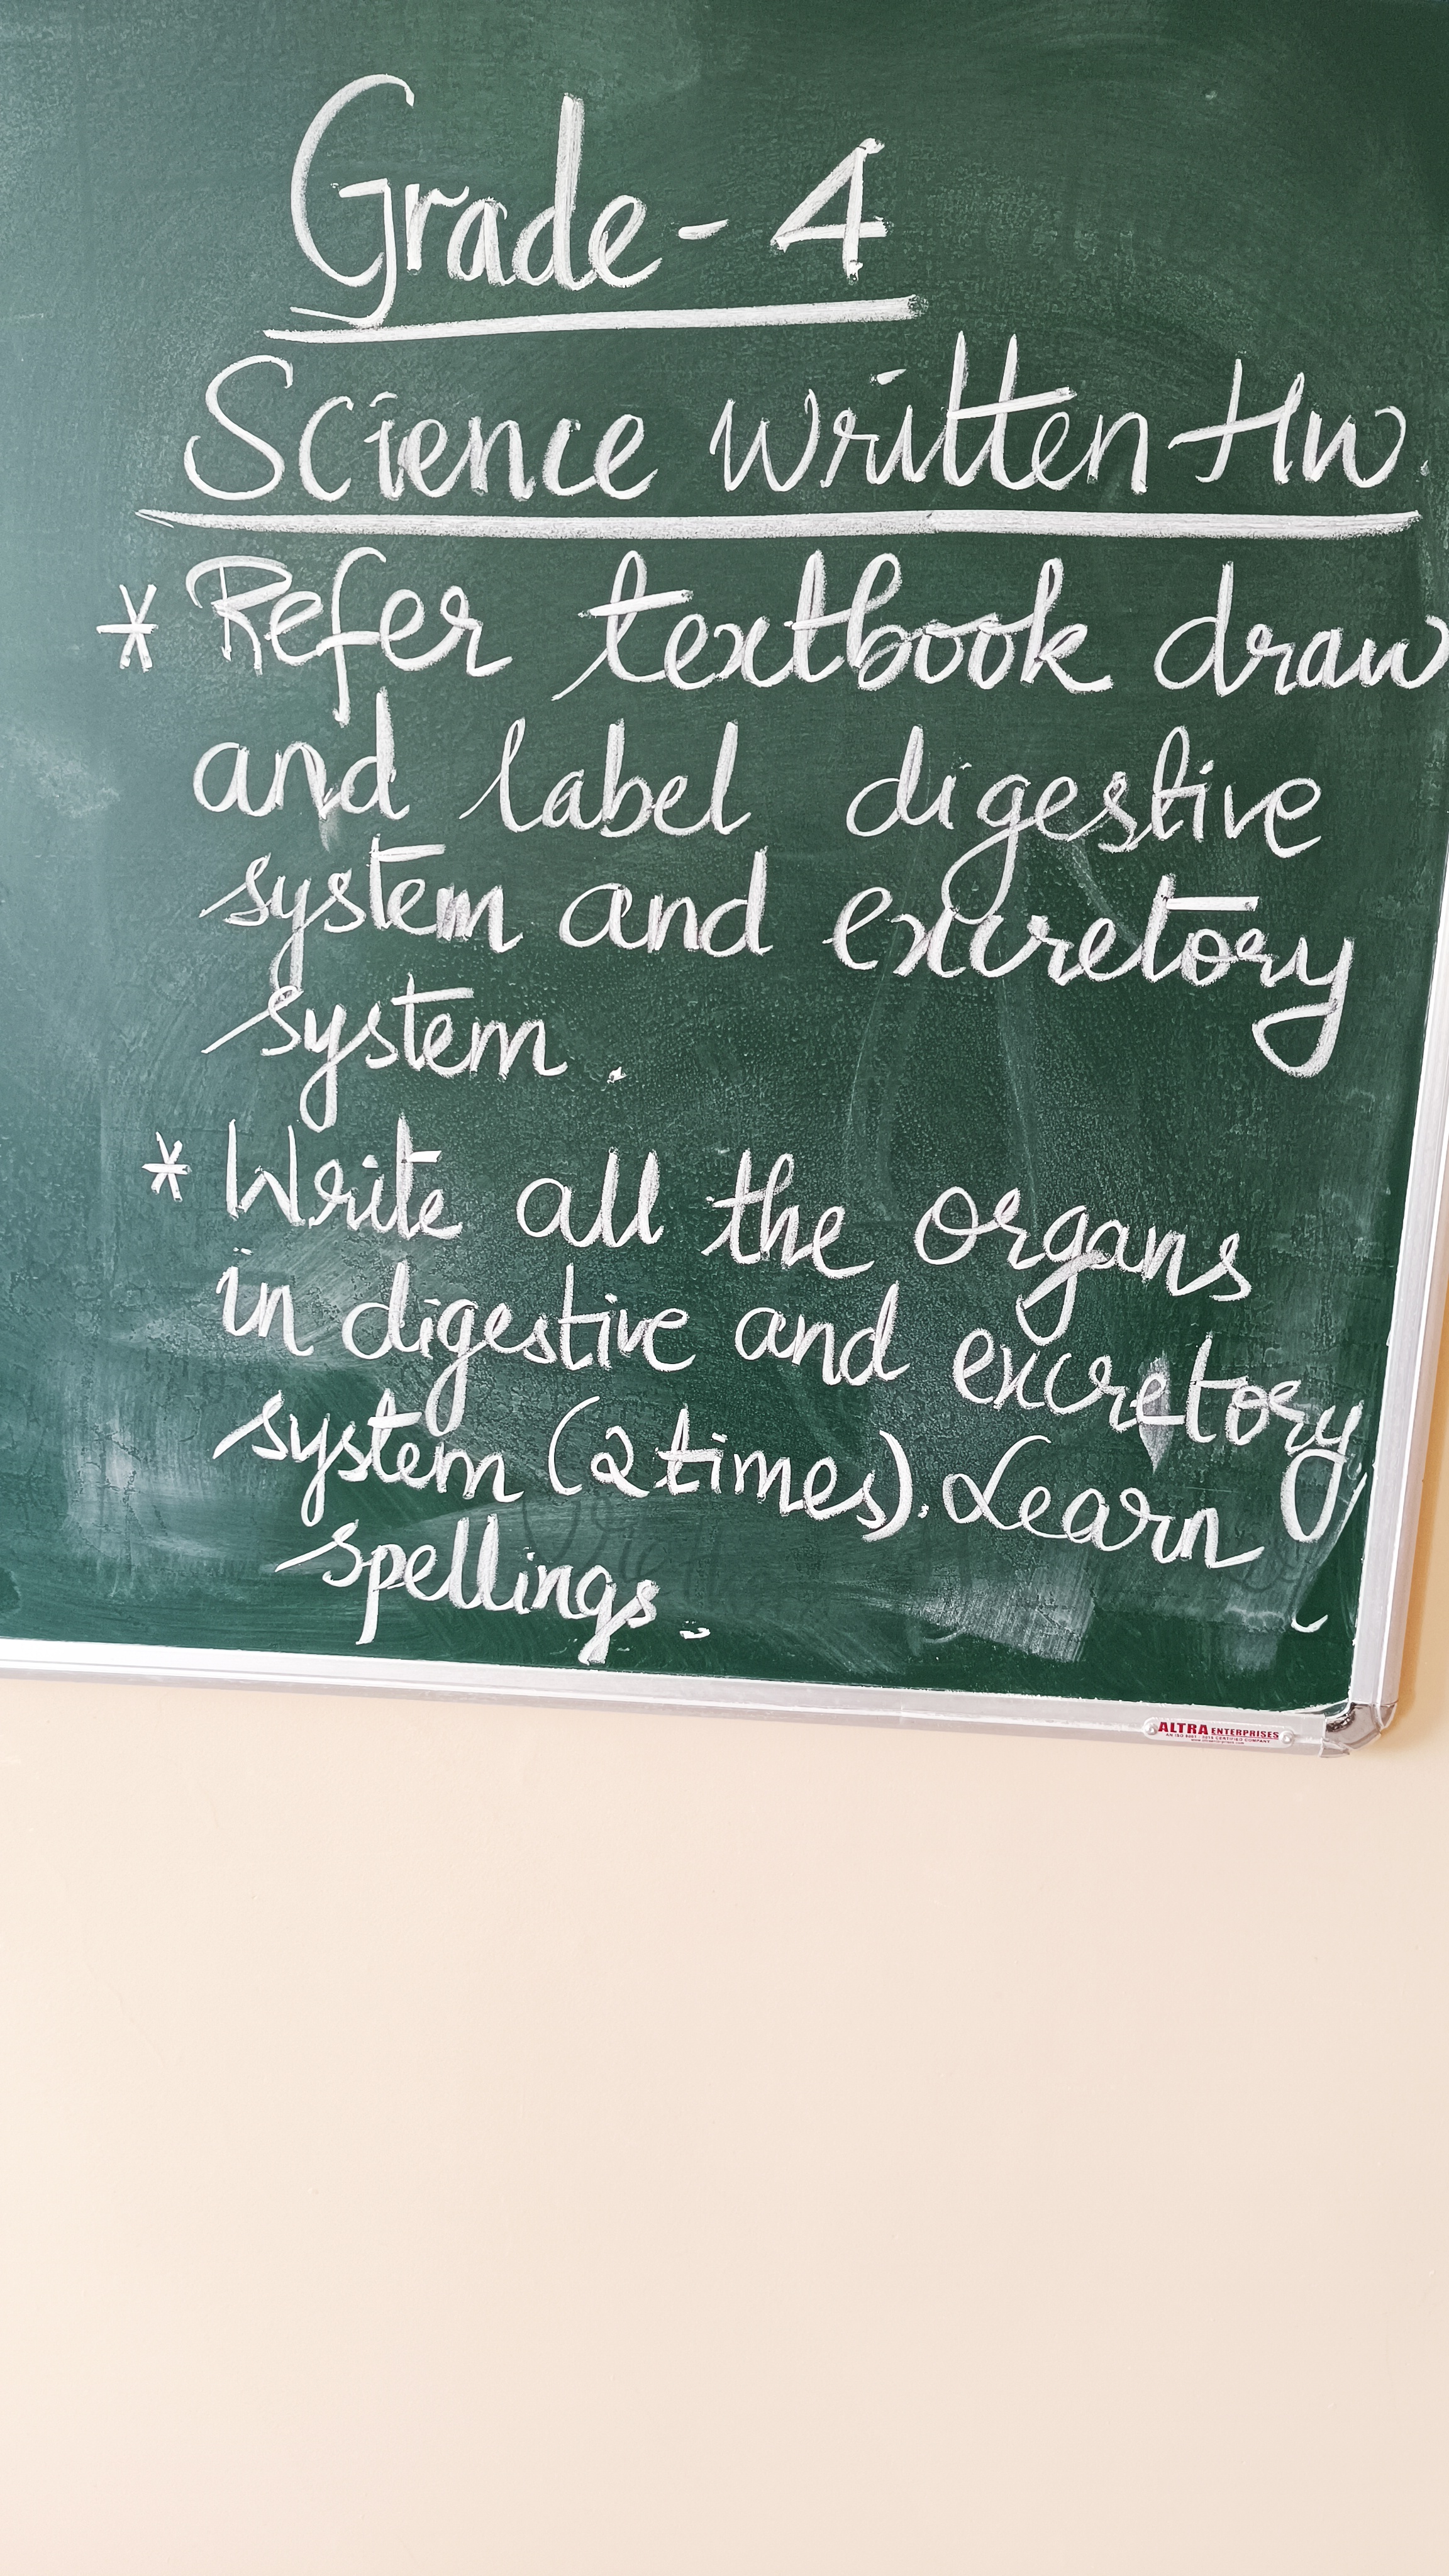 Grade - 4
Science written HW.
* Refer textbook draw
and label digestive
system and excretory
system.
* Write all the organs
in digestive and excretory
system (2 times). Learn
spellings.
ALTRA ENTERPRISES
AN ISO 9001 : 2015 CERTIFIED COMPANY